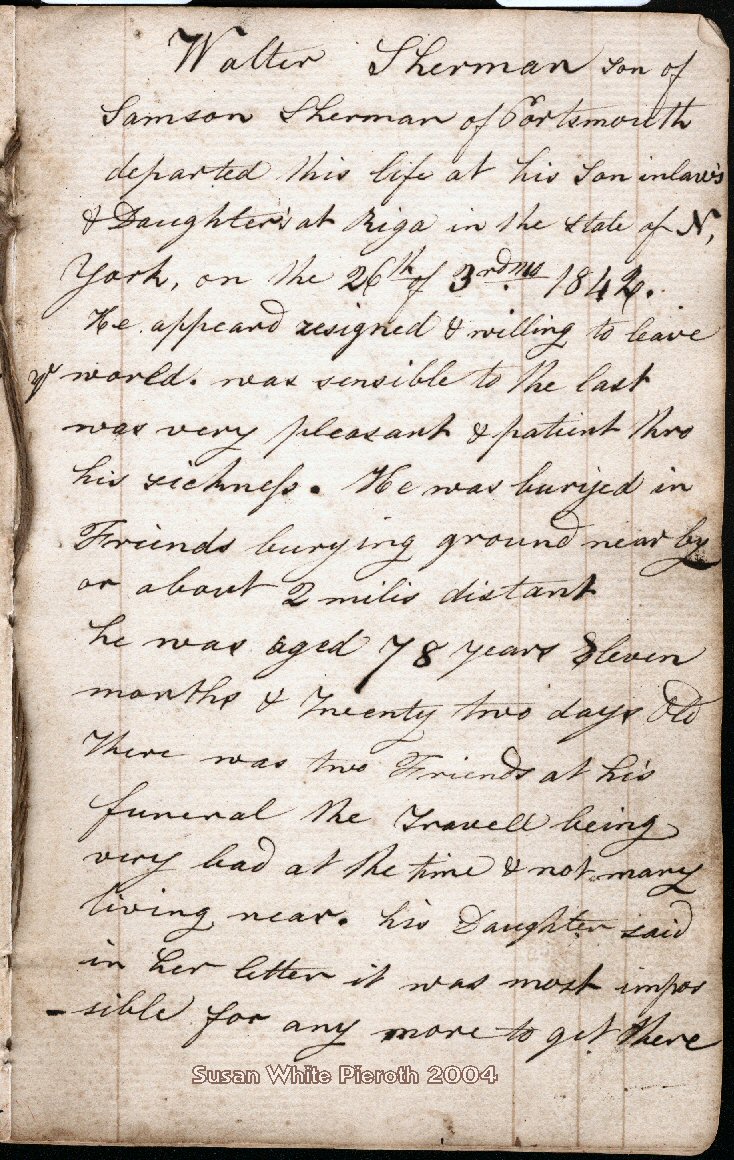 Walter Sherman son of
Samson Sherman of Portsmouth
departed this life at his Son inlaw's
& Daughter's at Riga in the state of N,
York, on the 26th of 3rd ms 1842.
He appeard resigned & willing to leave
ye world. was sensible to the last
was very pleasant & patient thro
his sickness. He was buryed in
Friends burying ground near by
or about 2 miles distant
he was aged 78 years Eleven
months & Twenty two days Old
There was two Friends at his
funeral the Travell being
very bad at the time & not many
living near. his Daughter said
in her letter it was most impos
-sible for any more to get there
Susan White Pieroth 2004